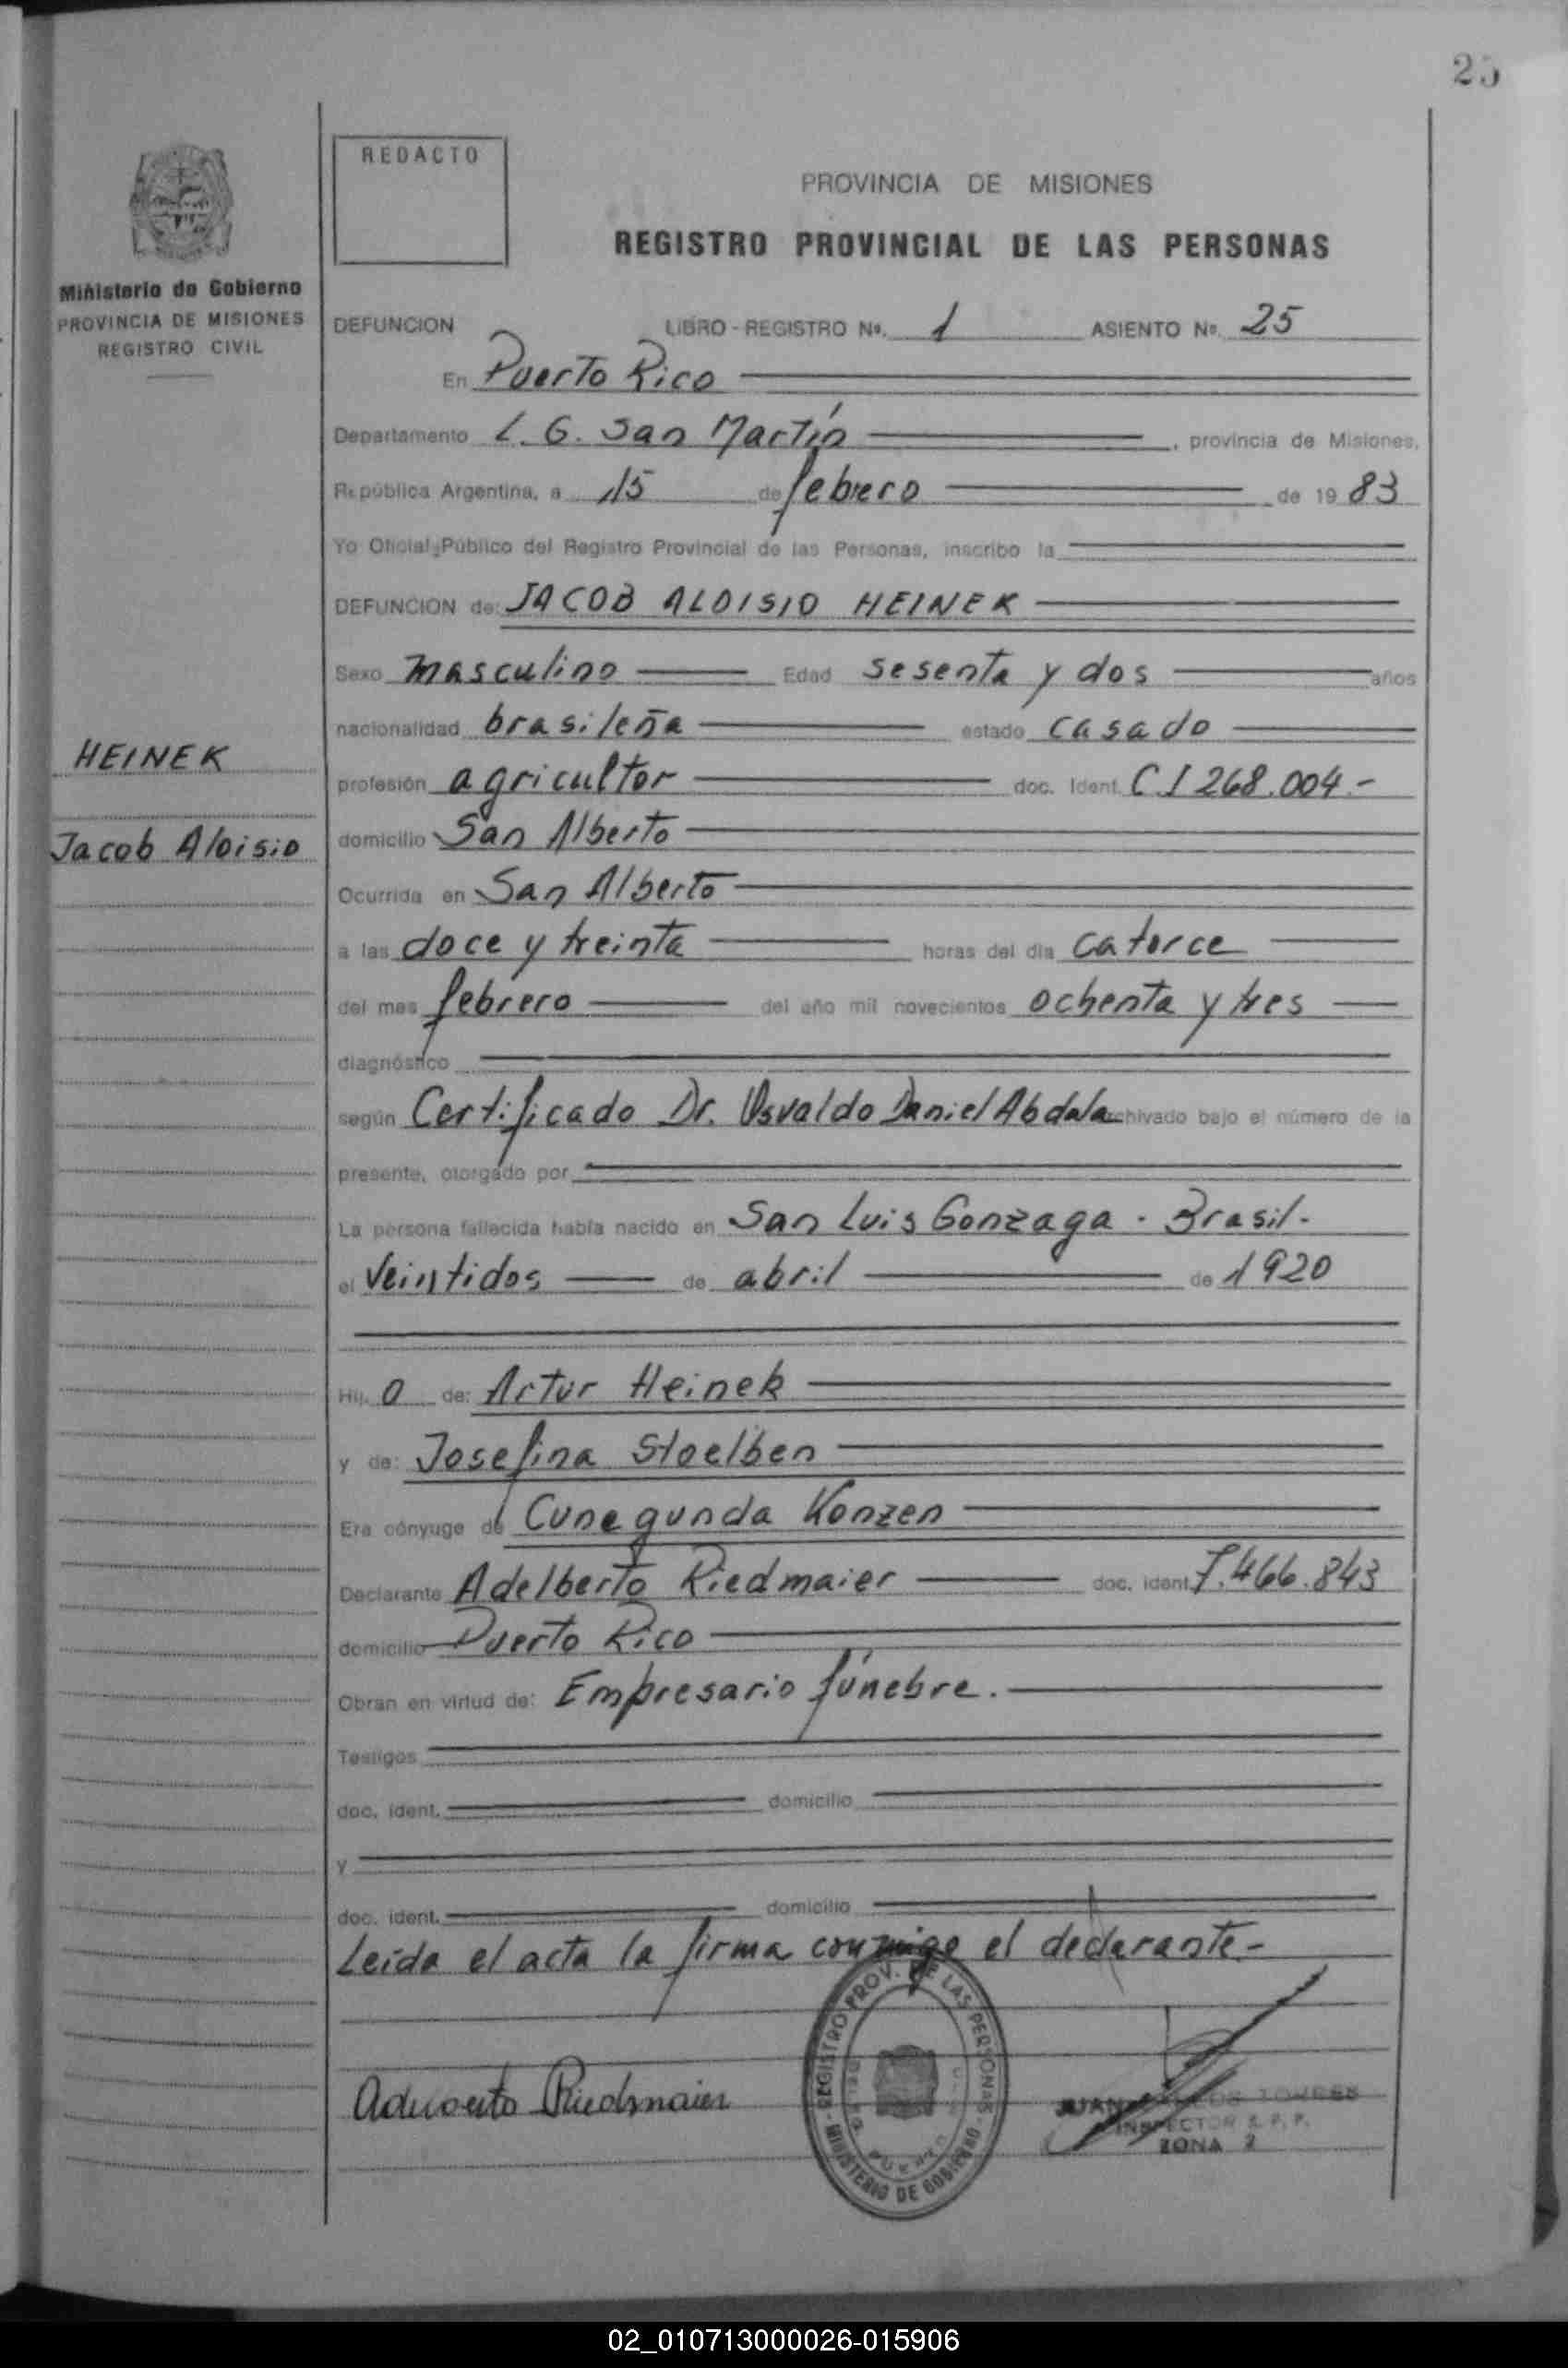 25
REDACTO
PROVINCIA DE MISIONES
REGISTRO PROVINCIAL DE LAS PERSONAS
Ministerio de Gobierno
PROVINCIA DE MISIONES
REGISTRO CIVIL
DEFUNCION LIBRO - REGISTRO Nº. 1 ASIENTO Nº. 25
En Puerto Rico
Departamento L. G. San Martín, provincia de Misiones,
República Argentina, a 15 de febrero de 19 83
Yo Oficial Público del Registro Provincial de las Personas, inscribo la
DEFUNCION de: JACOB ALOISIO HEINEK
Sexo masculino Edad sesenta y dos años
nacionalidad brasileña estado casado
HEINEK
profesión agricultor doc. Ident. C I 268.004.-
Jacob Aloisio
domicilio San Alberto
Ocurrida en San Alberto
a las doce y treinta horas del día catorce
del mes febrero del año mil novecientos ochenta y tres
diagnóstico
según Certificado Dr. Osvaldo Daniel Abdala archivado bajo el número de la
presente, otorgado por
La persona fallecida había nacido en San Luis Gonzaga - Brasil.
el veintidos de abril de 1920
Hij o de: Artur Heinek
y de: Josefina Stoelben
Era cónyuge de Cunegunda Konzen
Declarante Adelberto Riedmaier doc. ident. 7.466.843
domicilio Puerto Rico
Obran en virtud de: Empresario fúnebre.
Testigos
doc. ident. domicilio
y
doc. ident. domicilio
Leída el acta la firma conmigo el declarante.-
Adelberto Riedmaier
REGISTRO PROV. DE LAS PERSONAS
MINISTERIO DE GOBIERNO
JUAN TORRES
INSPECTOR
ZONA 2
02_010713000026-015906